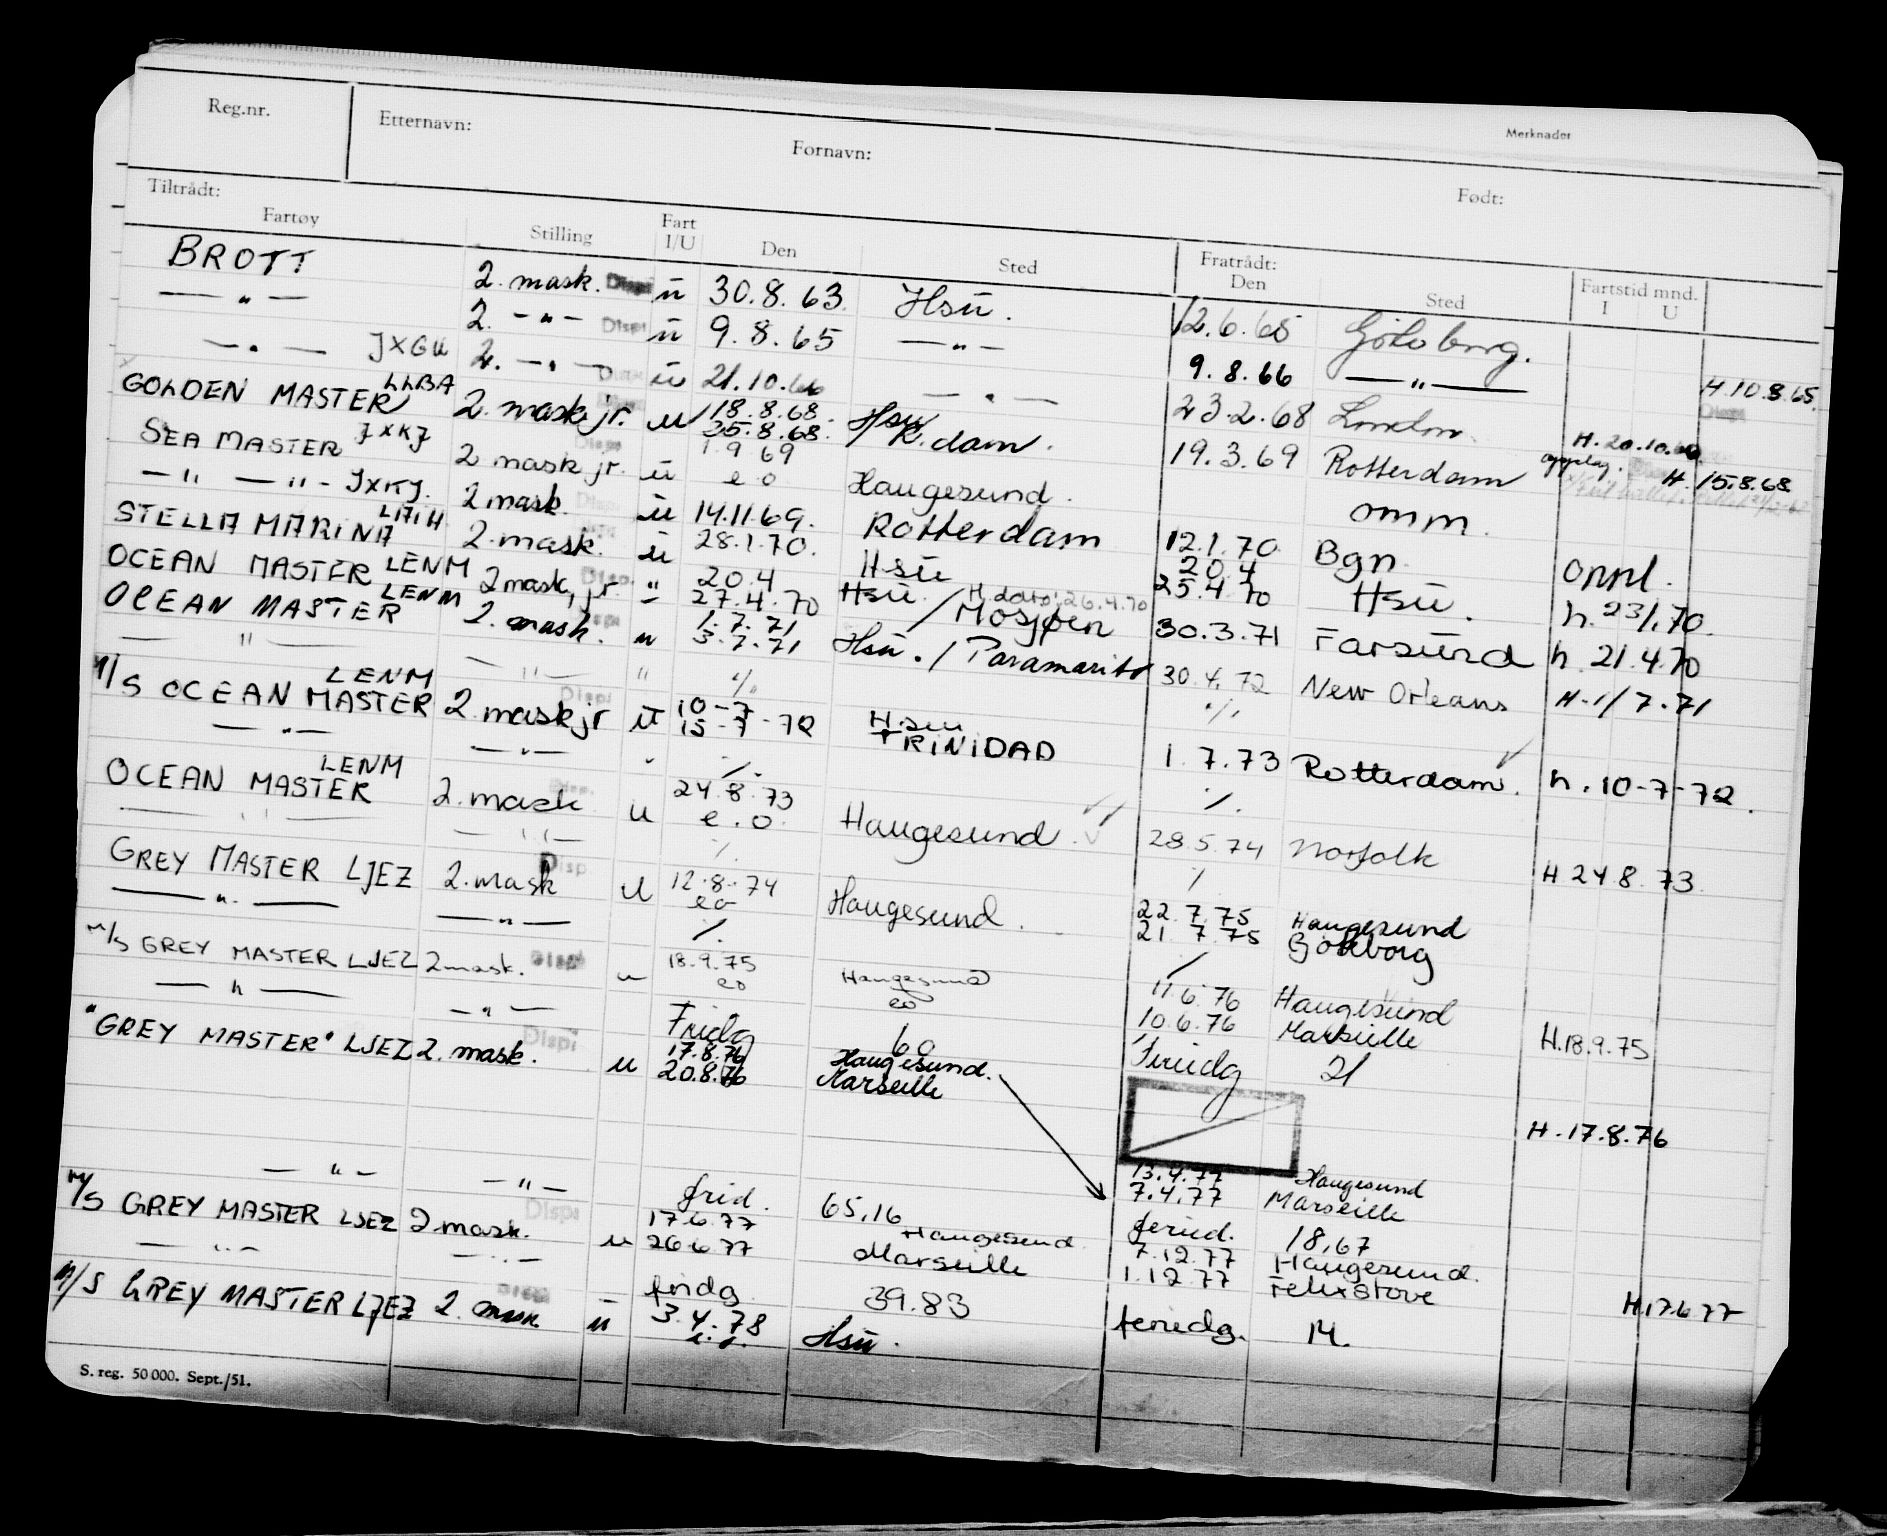 Merknader
Reg.nr. Etternavn: Fornavn: Født:
Tiltrådt: Fratrådt: Fartstid mnd.
Fartøy Stilling Fart I/U Den Sted Den Sted I U
BROTT 2. mask. Disp ü 30.8.63 Hsü. 12.6.65 Göteborg.
— " — 2. — " — Disp ü 9.8.65 — " — 9.8.66 — " — H 10.8.65
— " — JXGU 2. — " — Disp ü 21.10.66 — " — 23.2.68 London. H. 20.10.66
GOLDEN MASTER LLBA 2. mask jr. u 18.8.68 Hsü 19.3.69 Rotterdam H. 15.8.68
25.8.68 R.dam.
SEA MASTER JXKJ 2 mask jr. ü 1.9 69 Haugesund. omm.
e.o
— " — " — JXKJ. 2 mask ü 14.11.69. Rotterdam 12.1.70. Bgn. oppl.
STELLA MARINA LAIH 2. mask. ü 28.1.70. Hsü 20.4 Hsü. h. 23/1.70.
25.4 70
OCEAN MASTER LENM 2 mask, jr. Disp. " 20.4 Hsü. H. dato: 26.4.70 30.3.71 Farsund h. 21.4.70
27.4.70 / Mosjøen
OCEAN MASTER LENM 2. mask. u 1.7.71 Hsü. / Paramaribo 30.4.72 New Orleans H. 1/7.71
3.7.71
— " — — " — " ./. ./.
M/S OCEAN MASTER LENM 2 mask jr Disp ü 10-7 Hsü 1.7.73 Rotterdam. h. 10-7-72.
15-7-72 TRINIDAD
— " — — " — ./. ./.
OCEAN MASTER LENM 2. mask u 24.8.73 Haugesund 28.5.74 Norfolk H 24 8. 73
e.o.
— " — — " — ./. /
GREY MASTER LJEZ 2. mask Disp u 12.8.74 Haugesund. 22.7.75 Haugesund
eo 21.7.75 Göteborg
— " — — " — ./. /
M/S GREY MASTER LJEZ 2 mask. Disp u 18.9.75 Haugesund 11.6.76 Haugesund H.18.9.75
eo eo 10.6.76 Marseille
— " — — " — Fridg 60 Feriedg 21
"GREY MASTER" LJEZ 2. mask. Disp u 17.8.76 Haugesund. H. 17.8.76
20.8.76 Marseille
13.4.77 Haugesund
7.4.77 Marseille
— " — — " — frid. 65,16 feried. 18,67
M/S GREY MASTER LJEZ 2 mask. Disp u 17.6.77 Haugesund. 7.12.77 Haugesund. H.17.6 77
26.6.77 Marseille 1.12.77 Felixstove
— " — — " — fridg 39.83 feriedg. 14.
M/S GREY MASTER LJEZ 2. mask Disp ü 3.4.78 Hsü.
S. reg. 50 000. Sept./51.